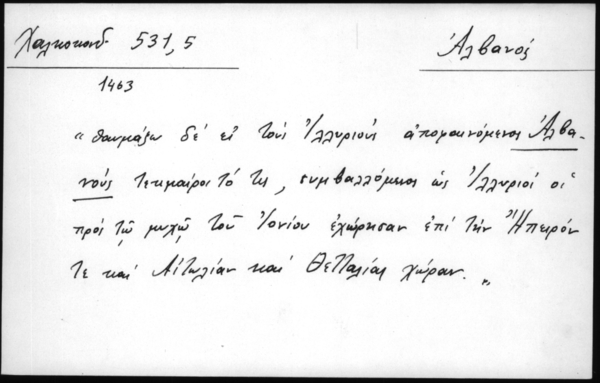 Χαλκοκονδ 531,5
Ἀλβανός
1463
"θαυμάζω δέ εἰ τούς Ἰλλυριούς ἀποφαινόμενος Ἀλβα-
νούς τεκμαίροιτό τις, συμβαλλόμενος ὡς Ἰλλυριοί οἱ
πρός τῷ μυχῷ τοῦ Ἰονίου ἐχώρησαν ἐπί τήν Ἤπειρόν
τε καί Αἰτωλίαν καί Θετταλίας χώραν."